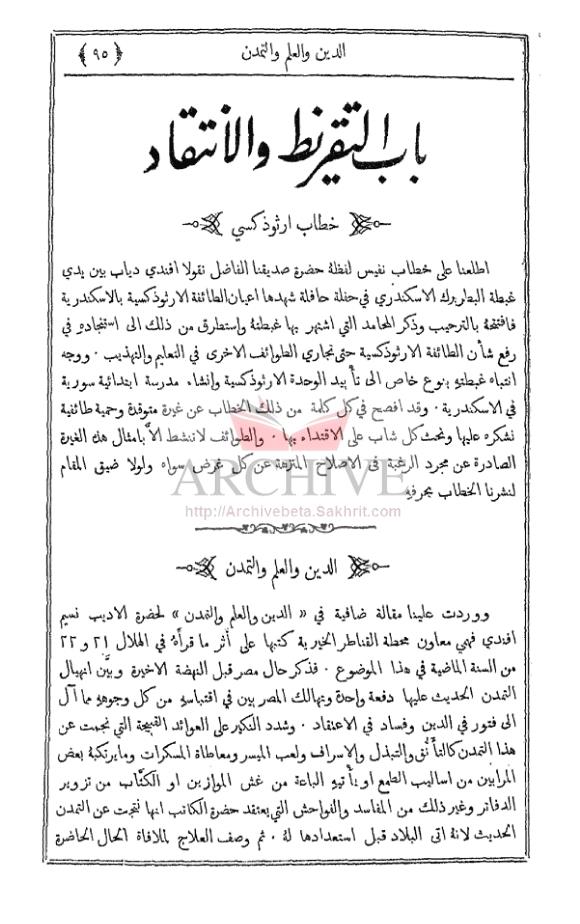 الدين والعلم والتمدن ﴿ ٩٥ ﴾
باب التقريظ والانتقاد
خطاب ارثوذكسي
اطلعنا على خطاب نفيس لفظهُ حضرة صديقنا الفاضل نقولا افندي دياب بين يدي
غبطة البطريرك الاسكندري في حفلة حافلة شهدها اعيان الطائفة الارثوذكسية بالاسكندرية
فافتتحهُ بالترحيب وذكر المحامد التي اشتهر بها غبطتهُ واستطرق من ذلك الى استنجادهِ في
رفع شأن الطائفة الارثوذكسية حتى تجاري الطوائف الاخرى في التعليم والتهذيب ٠ ووجه
انتباه غبطتهِ بنوع خاص الى تأييد الوحدة الارثوذكسية وانشاء مدرسة ابتدائية سورية
في الاسكندرية ٠ وقد افصح في كل كلمة من ذلك الخطاب عن غيرة متوقدة وحمية طائفية
نشكره عليها ونحث كل شاب على الاقتداء بها ٠ والطوائف لا تنشط الَّا بامثال هذه الغيرة
الصادرة عن مجرد الرغبة في الاصلاح المتنزهة عن كل غرض سواه ولولا ضيق المقام
لنشرنا الخطاب بحرفهِ
ARCHIVE
http://Archivebeta.Sakhrit.com
الدين والعلم والتمدن
ووردت علينا مقالة ضافية في « الدين والعلم والتمدن » لحضرة الاديب نسيم
افندي فهمي معاون محطة القناطر الخيرية كتبها على أثر ما قرأهُ في الهلال ٢١ و ٢٢
من السنة الماضية في هذا الموضوع ٠ فذكر حال مصر قبل النهضة الاخيرة وبيَّن انهيال
التمدن الحديث عليها دفعة واحدة وتهالك المصريين في اقتباسهِ من كل وجوههِ مما آل
الى فتور في الدين وفساد في الاعتقاد ٠ وشدد النكير على العوائد القبيحة التي نجمت عن
هذا التمدن كالتأنُّق والتبذل والاسراف ولعب الميسر ومعاطاة المسكرات وما يرتكبهُ بعض
المرابين من اساليب الطمع او يأتيهِ الباعة من غش الموازين او الكتَّاب من تزوير
الدفاتر وغير ذلك من المفاسد والفواحش التي يعتقد حضرة الكاتب انها نتجت عن التمدن
الحديث لانهُ اتى البلاد قبل استعدادها لهُ ٠ ثم وصف العلاج لملافاة الحال الحاضرة